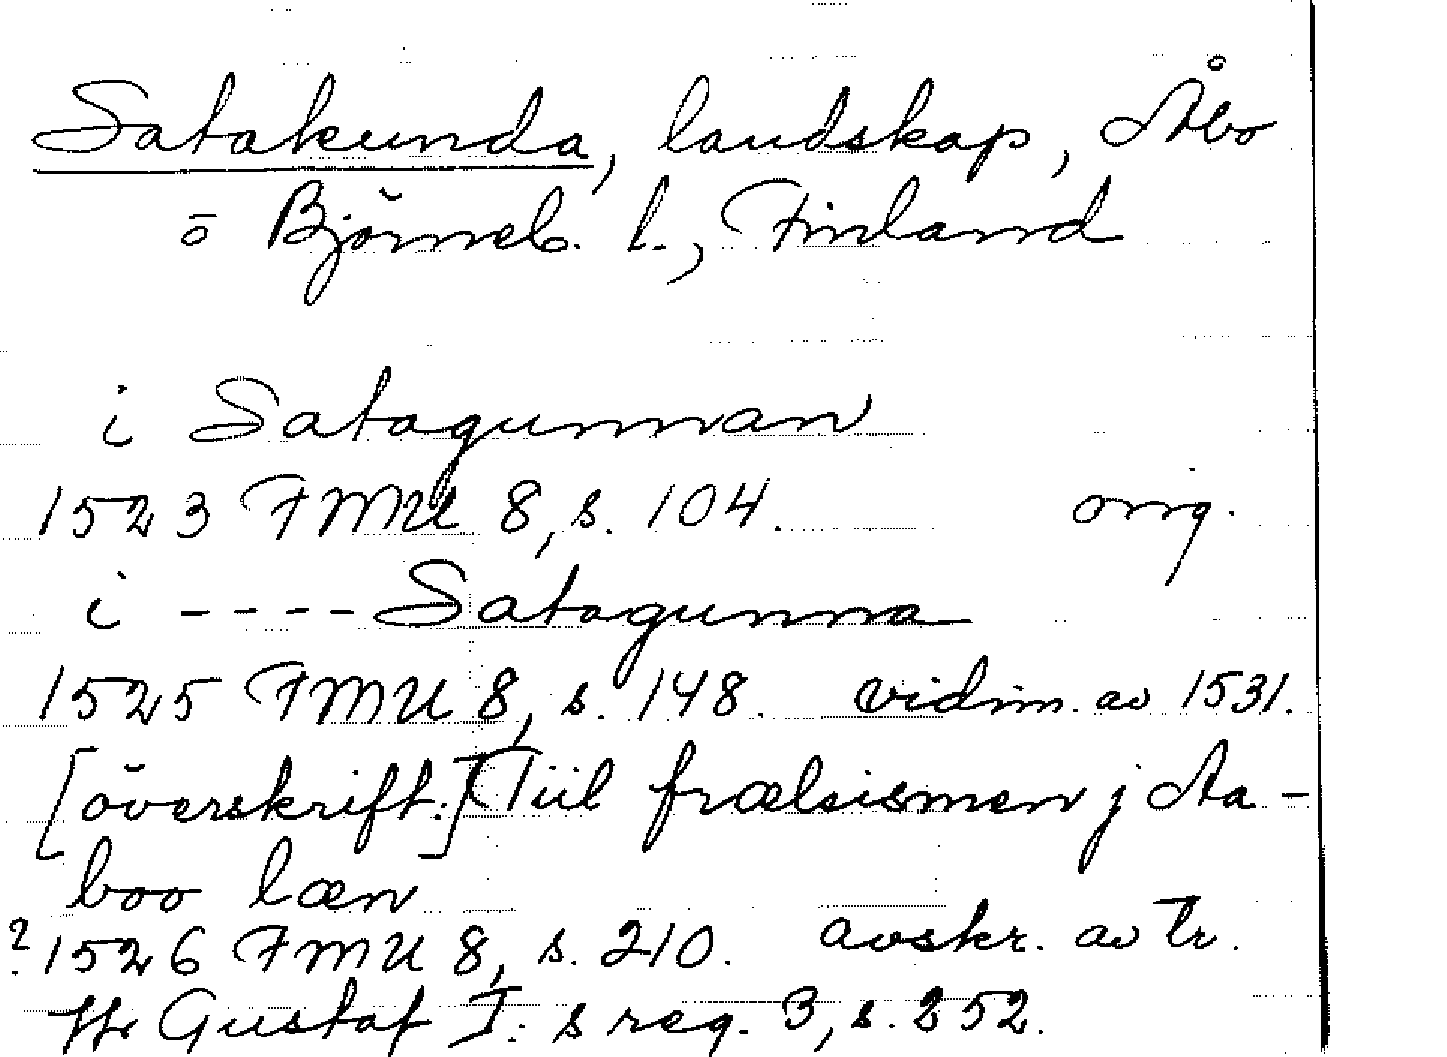 Satakunda, landskap, Åbo
o Björneb. l., Finland
i Satagunnan
1523 FMU 8, s. 104. orig.
i ---- Satagunna
1525 FMU 8, s. 148. vidim. av 1531.
[överskrift:] Tiil frælsismen j Aa-
boo læn
? 1526 FMU 8, s. 210. avskr. av tr.
Gustaf I:s reg. 3, s. 252.